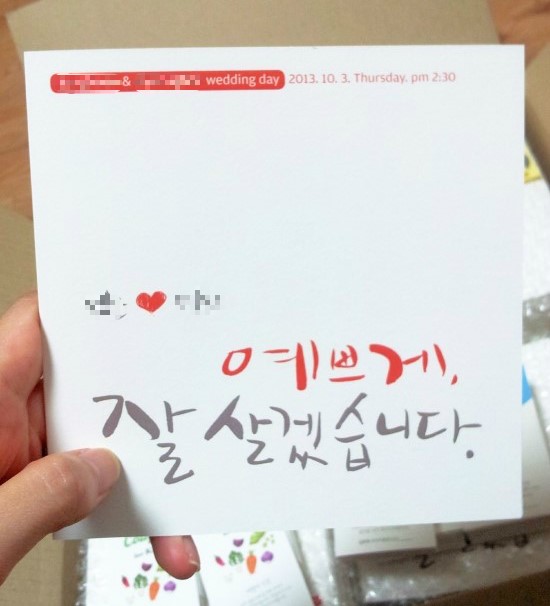 & wedding day 2013. 10. 3. Thursday. pm 2:30
예쁘게,
잘 살겠습니다.